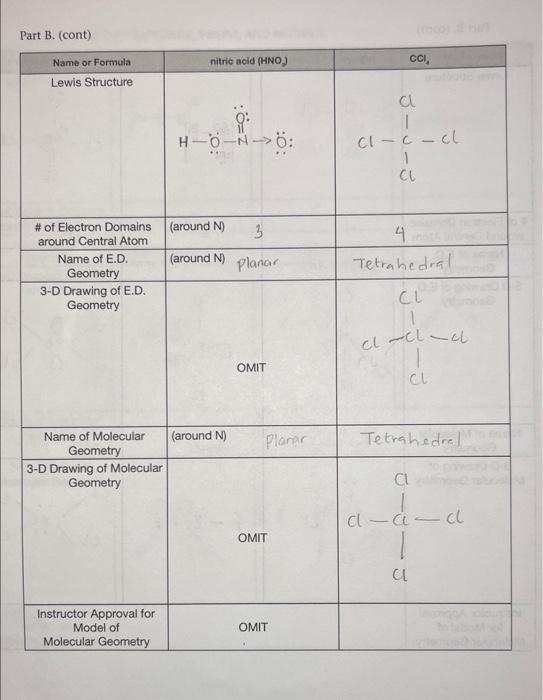 Part B. (cont)
Name or Formula nitric acid (HNO₃) CCl₄
Lewis Structure
Ö:
||
H—Ö—N→Ö:
Cl
|
Cl — C — Cl
|
Cl
# of Electron Domains around Central Atom
(around N) 3
4
Name of E.D. Geometry
(around N) Planar
Tetrahedral
3-D Drawing of E.D. Geometry
OMIT
Cl
|
Cl — Cl — Cl
|
Cl
Name of Molecular Geometry
(around N) Planar
Tetrahedral
3-D Drawing of Molecular Geometry
OMIT
Cl
|
Cl — Cl — Cl
|
Cl
Instructor Approval for Model of Molecular Geometry
OMIT